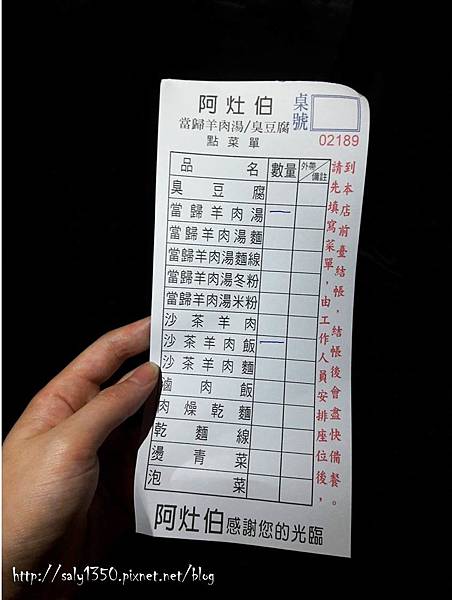 阿灶伯
當歸羊肉湯/臭豆腐
點菜單
桌號
02189
品名 數量 外帶/備註
臭豆腐
當歸羊肉湯 一
當歸羊肉湯麵
當歸羊肉湯麵線
當歸羊肉湯冬粉
當歸羊肉湯米粉
沙茶羊肉
沙茶羊肉飯 一
沙茶羊肉麵
滷肉飯
肉燥乾麵
乾麵線
燙青菜
泡菜
到本店前臺結帳，結帳後會盡快備餐。
請先填寫菜單，由工作人員安排座位後，
阿灶伯感謝您的光臨
http://saly1350.pixnet.net/blog